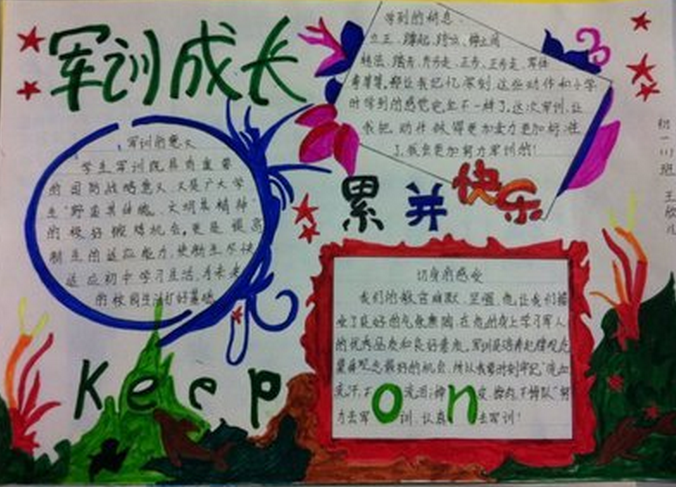 军训成长
学到的东西
立正、蹲起、跨立、停止间
转法、踏步、齐步走、正步、正步走、军体
拳等等。都让我记忆深刻，这些动作和小学
时学到的感觉完全不一样了。这次军训，让
我把动作做得更加有力更加标准
了，我会更加努力军训的！
军训的意义
学生军训既具有重要
的国防战略意义，又是广大学
生“野蛮其体魄、文明其精神”
的极好锻炼机会，更是提高
新生的适应能力，使新生尽快
适应初中学习生活，为未来
的校园生活打好基础。
累并快乐
初一(1)班 王欣儿
切身的感受
我们的教官幽默、坚强，他让我们
受了良好的气象熏陶，在他的身上学习军人
的优秀品质和良好意志，军训是培养纪律观念
最好的机会，所以我要时刻牢记“流血
流汗，不流泪，掉皮、掉肉、不掉队”努
力去军训，认真去军训！
Keep on